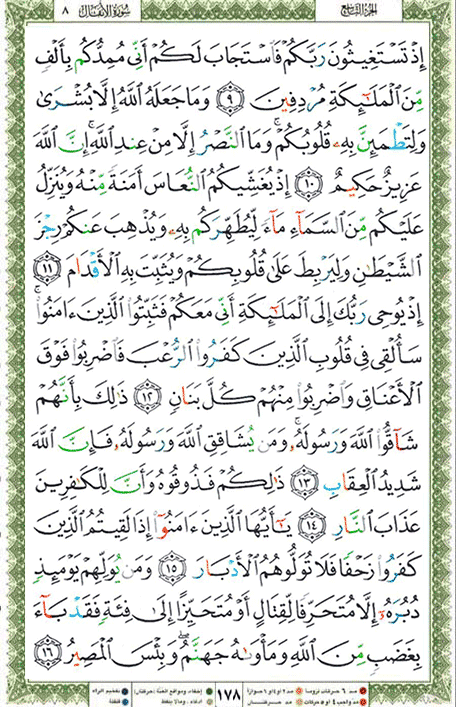 الجزء التاسع سورة الأنفال ٨
إِذْ تَسْتَغِيثُونَ رَبَّكُمْ فَٱسْتَجَابَ لَكُمْ أَنِّى مُمِدُّكُم بِأَلْفٍ
مِّنَ ٱلْمَلَـٰٓئِكَةِ مُرْدِفِينَ ٩ وَمَا جَعَلَهُ ٱللَّهُ إِلَّا بُشْرَىٰ
وَلِتَطْمَئِنَّ بِهِۦ قُلُوبُكُمْ ۚ وَمَا ٱلنَّصْرُ إِلَّا مِنْ عِندِ ٱللَّهِ ۚ إِنَّ ٱللَّهَ
عَزِيزٌ حَكِيمٌ ١٠ إِذْ يُغَشِّيكُمُ ٱلنُّعَاسَ أَمَنَةً مِّنْهُ وَيُنَزِّلُ
عَلَيْكُم مِّنَ ٱلسَّمَآءِ مَآءً لِّيُطَهِّرَكُم بِهِۦ وَيُذْهِبَ عَنكُمْ رِجْزَ
ٱلشَّيْطَـٰنِ وَلِيَرْبِطَ عَلَىٰ قُلُوبِكُمْ وَيُثَبِّتَ بِهِ ٱلْأَقْدَامَ ١١
إِذْ يُوحِى رَبُّكَ إِلَى ٱلْمَلَـٰٓئِكَةِ أَنِّى مَعَكُمْ فَثَبِّتُوا۟ ٱلَّذِينَ ءَامَنُوا۟ ۚ
سَأُلْقِى فِى قُلُوبِ ٱلَّذِينَ كَفَرُوا۟ ٱلرُّعْبَ فَٱضْرِبُوا۟ فَوْقَ
ٱلْأَعْنَاقِ وَٱضْرِبُوا۟ مِنْهُمْ كُلَّ بَنَانٍ ١٢ ذَٰلِكَ بِأَنَّهُمْ
شَآقُّوا۟ ٱللَّهَ وَرَسُولَهُۥ ۚ وَمَن يُشَاقِقِ ٱللَّهَ وَرَسُولَهُۥ فَإِنَّ ٱللَّهَ
شَدِيدُ ٱلْعِقَابِ ١٣ ذَٰلِكُمْ فَذُوقُوهُ وَأَنَّ لِلْكَـٰفِرِينَ
عَذَابَ ٱلنَّارِ ١٤ يَـٰٓأَيُّهَا ٱلَّذِينَ ءَامَنُوٓا۟ إِذَا لَقِيتُمُ ٱلَّذِينَ
كَفَرُوا۟ زَحْفًا فَلَا تُوَلُّوهُمُ ٱلْأَدْبَارَ ١٥ وَمَن يُوَلِّهِمْ يَوْمَئِذٍ
دُبُرَهُۥٓ إِلَّا مُتَحَرِّفًا لِّقِتَالٍ أَوْ مُتَحَيِّزًا إِلَىٰ فِئَةٍ فَقَدْ بَآءَ
بِغَضَبٍ مِّنَ ٱللَّهِ وَمَأْوَىٰهُ جَهَنَّمُ ۖ وَبِئْسَ ٱلْمَصِيرُ ١٦
مد ٦ حركات لزوما مد ٢ او ٤ او ٦ جوازا إخفاء، ومواقع الغنة (حركتان) تفخيم الراء
١٧٨
مد واجب ٤ او ٥ حركات مد حركتان ادغام، وما لا يلفظ قلقلة